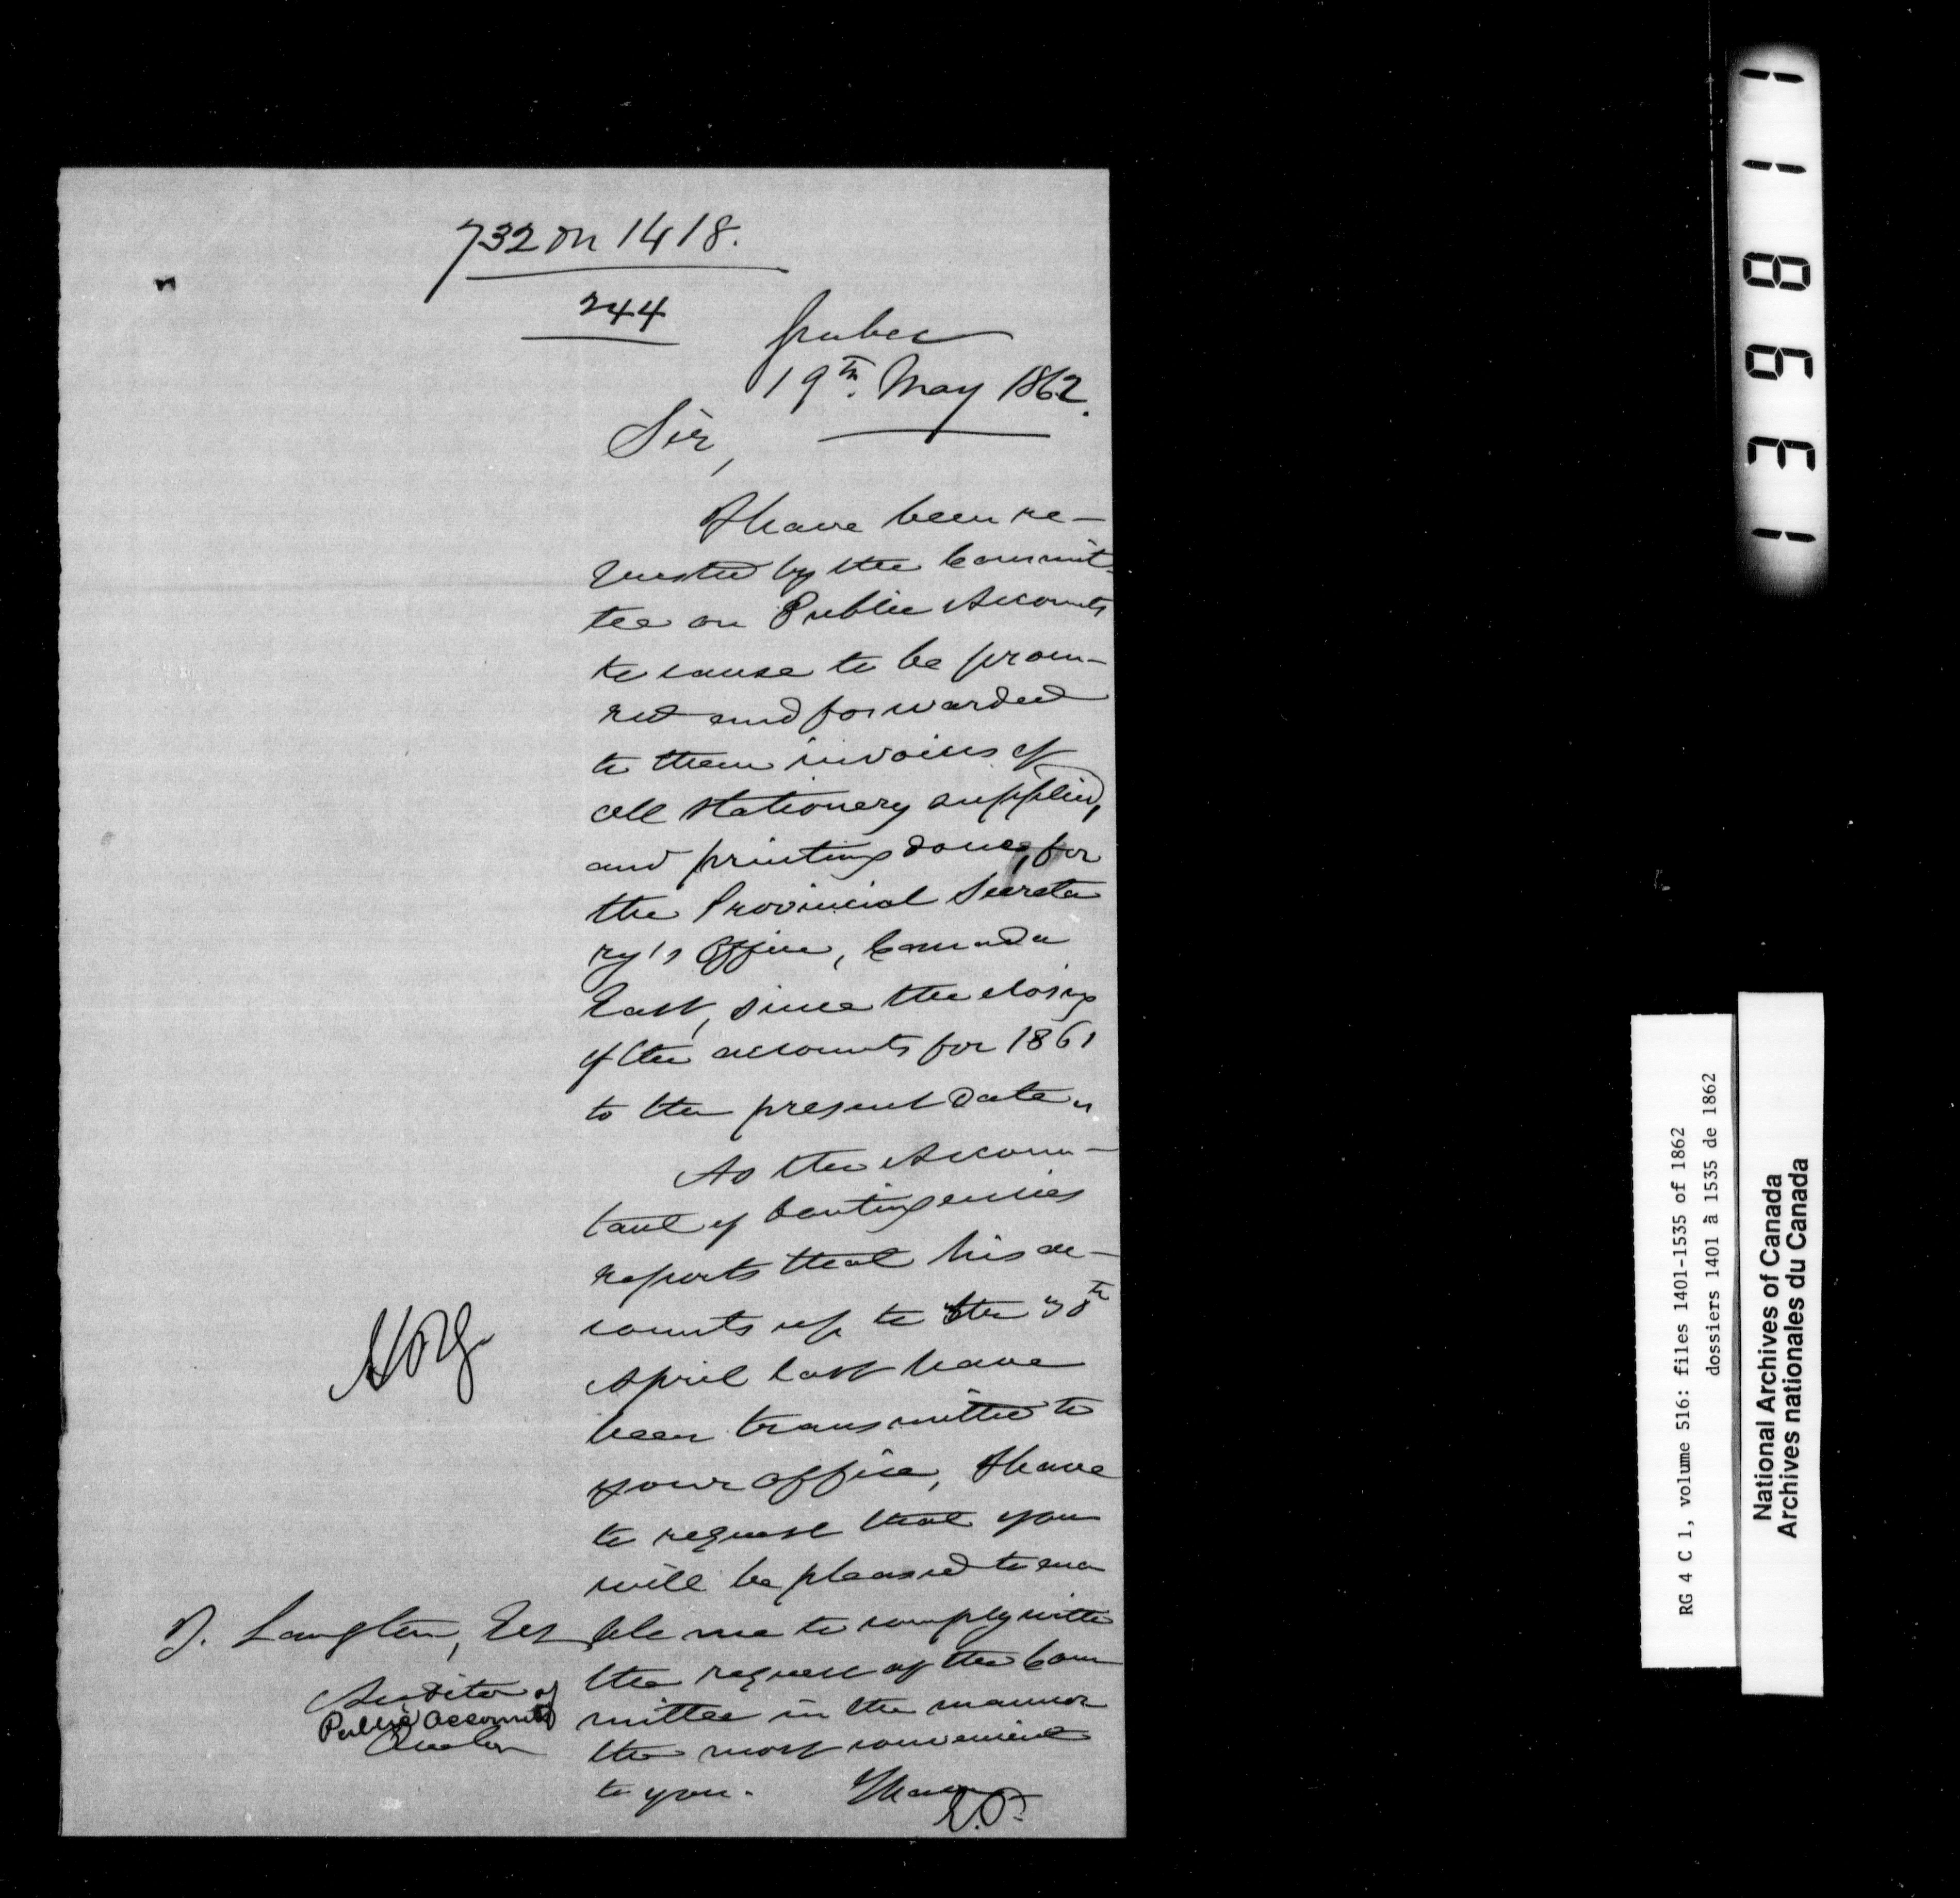 732 on 1418.
244
Quebec
19th. May 1862.
Sir,
I have been re-
quested by the Commit-
tee on Public Accounts
to cause to be procu-
red and forwarded
to them invoices of
all stationery supplied,
and printing done, for
the Provincial Secreta
ry's Office, Canada
East, since the closing
of the accounts for 1861
to the present date.
As the Accoun-
tant of Contingencies
reports that his ac-
counts up to the 30th
April last have
been transmitted to
your office, I have
to request that you
will be pleased to ena
ble me to comply with
the request of the Com
mittee in the manner
the most convenient
to you. I have
J. Langton, Esq
Auditor of
Public Accounts
Quebec
11
8
6
3
1
RG 4 C 1, volume 516: files 1401-1535 of 1862
dossiers 1401 à 1535 de 1862
National Archives of Canada
Archives nationales du Canada